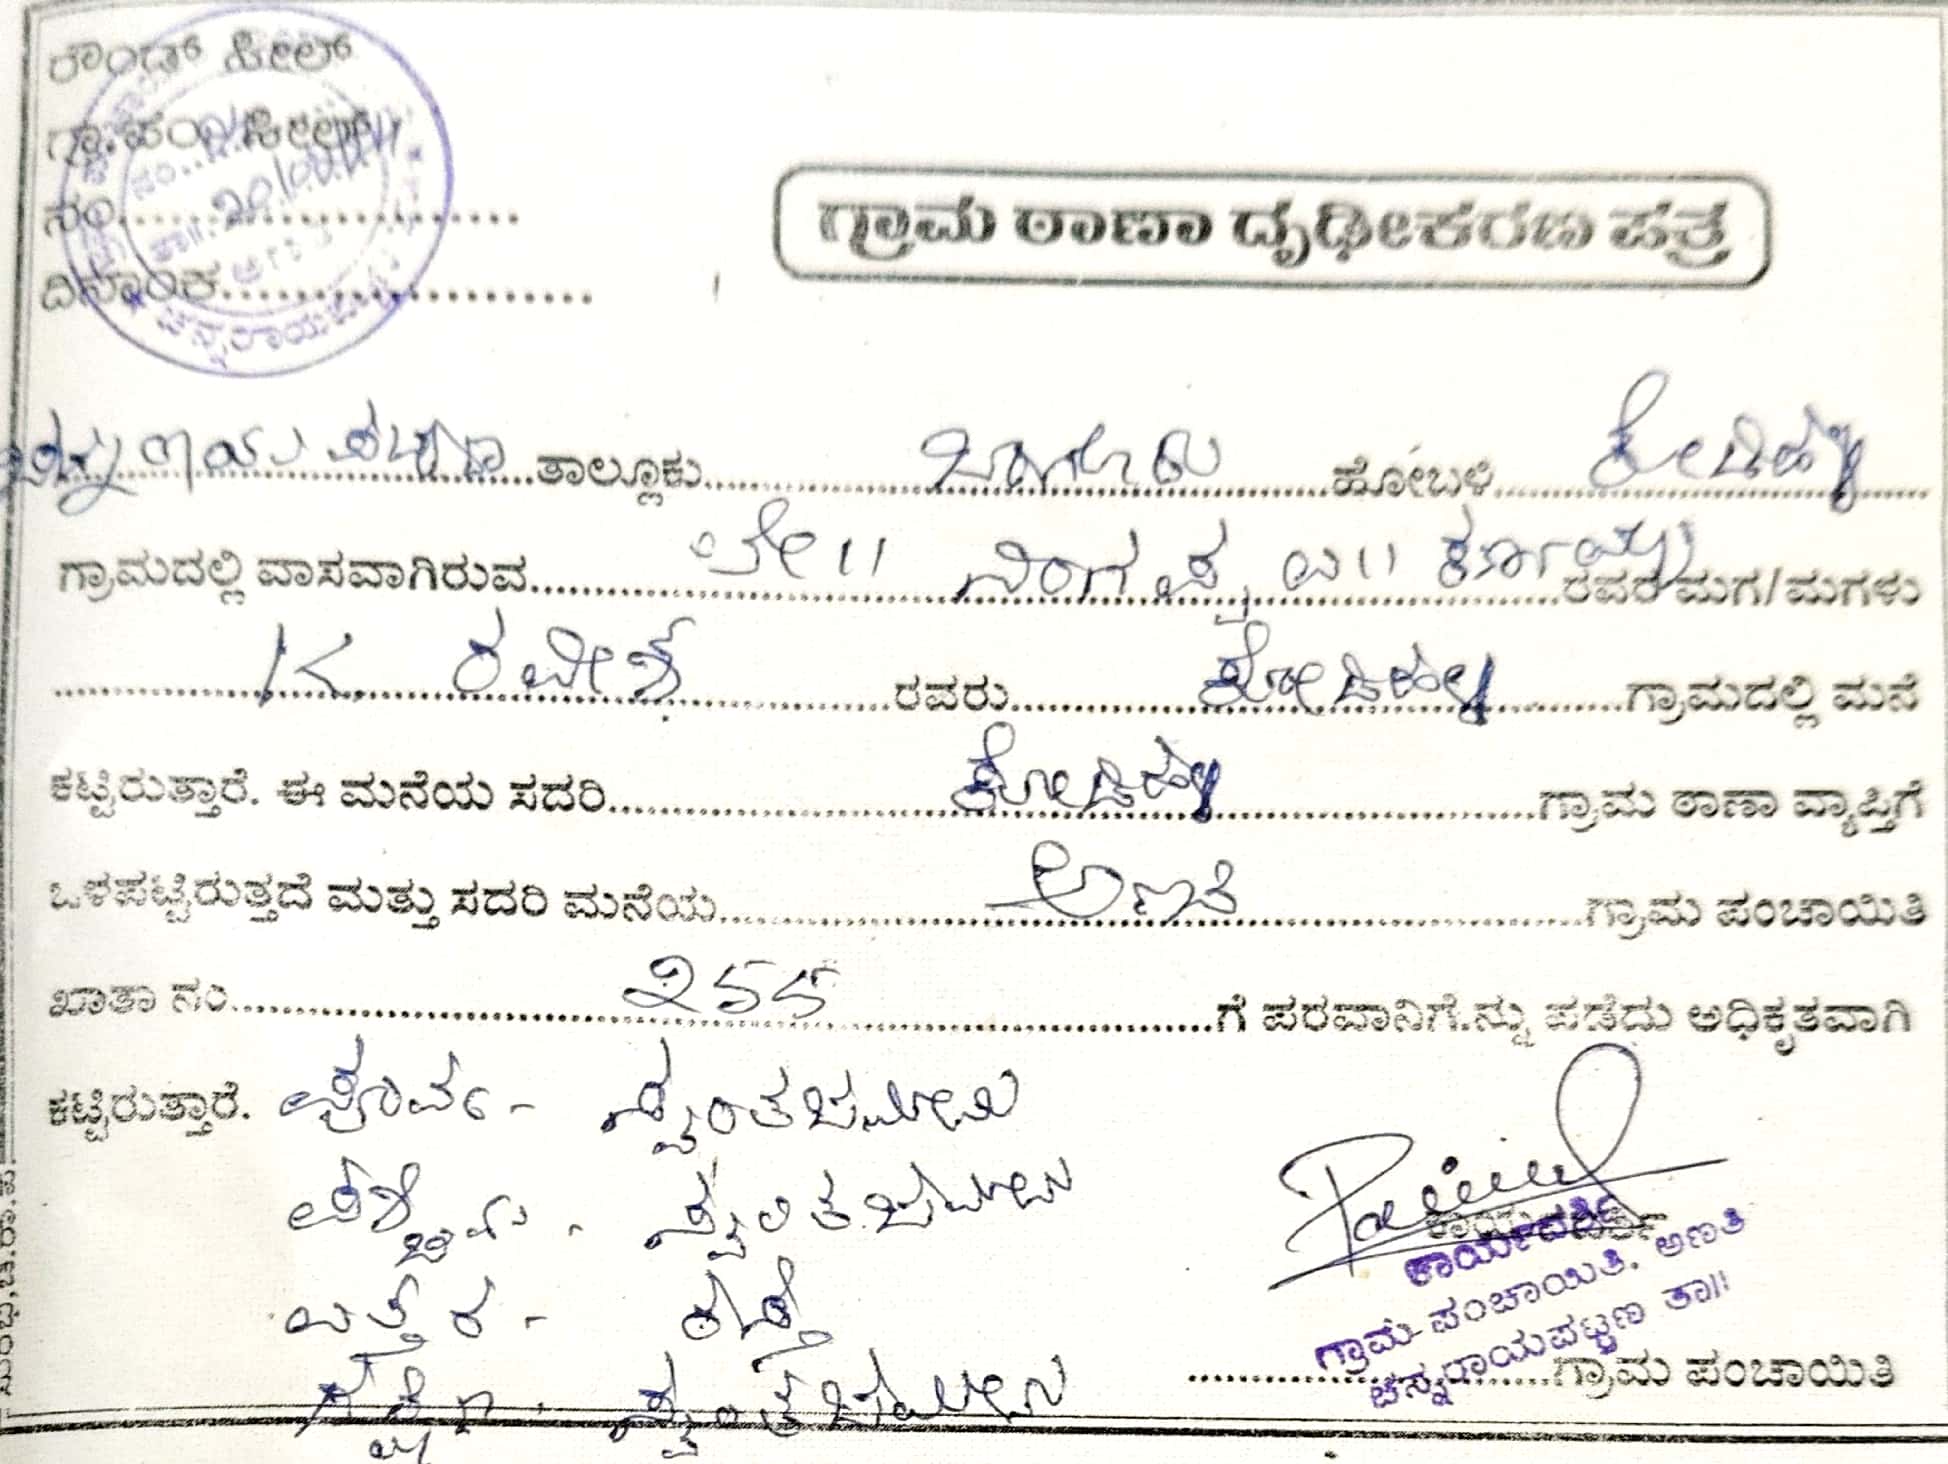 ರೌಂಡ್ ಸೀಲ್
ಗ್ರಾ.ಪಂ. ಸೀಲ್
ನಂ..........................
ದಿನಾಂಕ..........................
ಚನ್ನರಾಯಪಟ್ಟಣ
ಗ್ರಾಮ ಠಾಣಾ ದೃಢೀಕರಣ ಪತ್ರ
ಚನ್ನರಾಯಪಟ್ಟಣ ತಾಲ್ಲೂಕು ಬಾಗೂರು ಹೋಬಳಿ ಕೋಡಿಹಳ್ಳಿ
ಗ್ರಾಮದಲ್ಲಿ ವಾಸವಾಗಿರುವ ಲೇ॥ ನಿಂಗಪ್ಪ ರವರ ಮಗ/ಮಗಳು
K. ರವೀಶ್ ರವರು ಕೋಡಿಹಳ್ಳಿ ಗ್ರಾಮದಲ್ಲಿ ಮನೆ
ಕಟ್ಟಿರುತ್ತಾರೆ. ಈ ಮನೆಯ ಸದರಿ ಕೋಡಿಹಳ್ಳಿ ಗ್ರಾಮ ಠಾಣಾ ವ್ಯಾಪ್ತಿಗೆ
ಒಳಪಟ್ಟಿರುತ್ತದೆ ಮತ್ತು ಸದರಿ ಮನೆಯ ಅಣತಿ ಗ್ರಾಮ ಪಂಚಾಯಿತಿ
ಖಾತಾ ನಂ 255 ಗೆ ಪರವಾನಿಗೆ.ನ್ನು ಪಡೆದು ಅಧಿಕೃತವಾಗಿ
ಕಟ್ಟಿರುತ್ತಾರೆ. ಪೂರ್ವ - ಸ್ವಂತ ಜಮೀನು
ಪಶ್ಚಿಮ - ಸ್ವಂತ ಜಮೀನು
ಉತ್ತರ - ರಸ್ತೆ
ದಕ್ಷಿಣ - ಸ್ವಂತ ಜಮೀನು
ಕಾರ್ಯದರ್ಶಿ
ಕಾರ್ಯದರ್ಶಿ
ಗ್ರಾಮ ಪಂಚಾಯಿತಿ, ಅಣತಿ
ಚನ್ನರಾಯಪಟ್ಟಣ ತಾ॥
..........................ಗ್ರಾಮ ಪಂಚಾಯಿತಿ